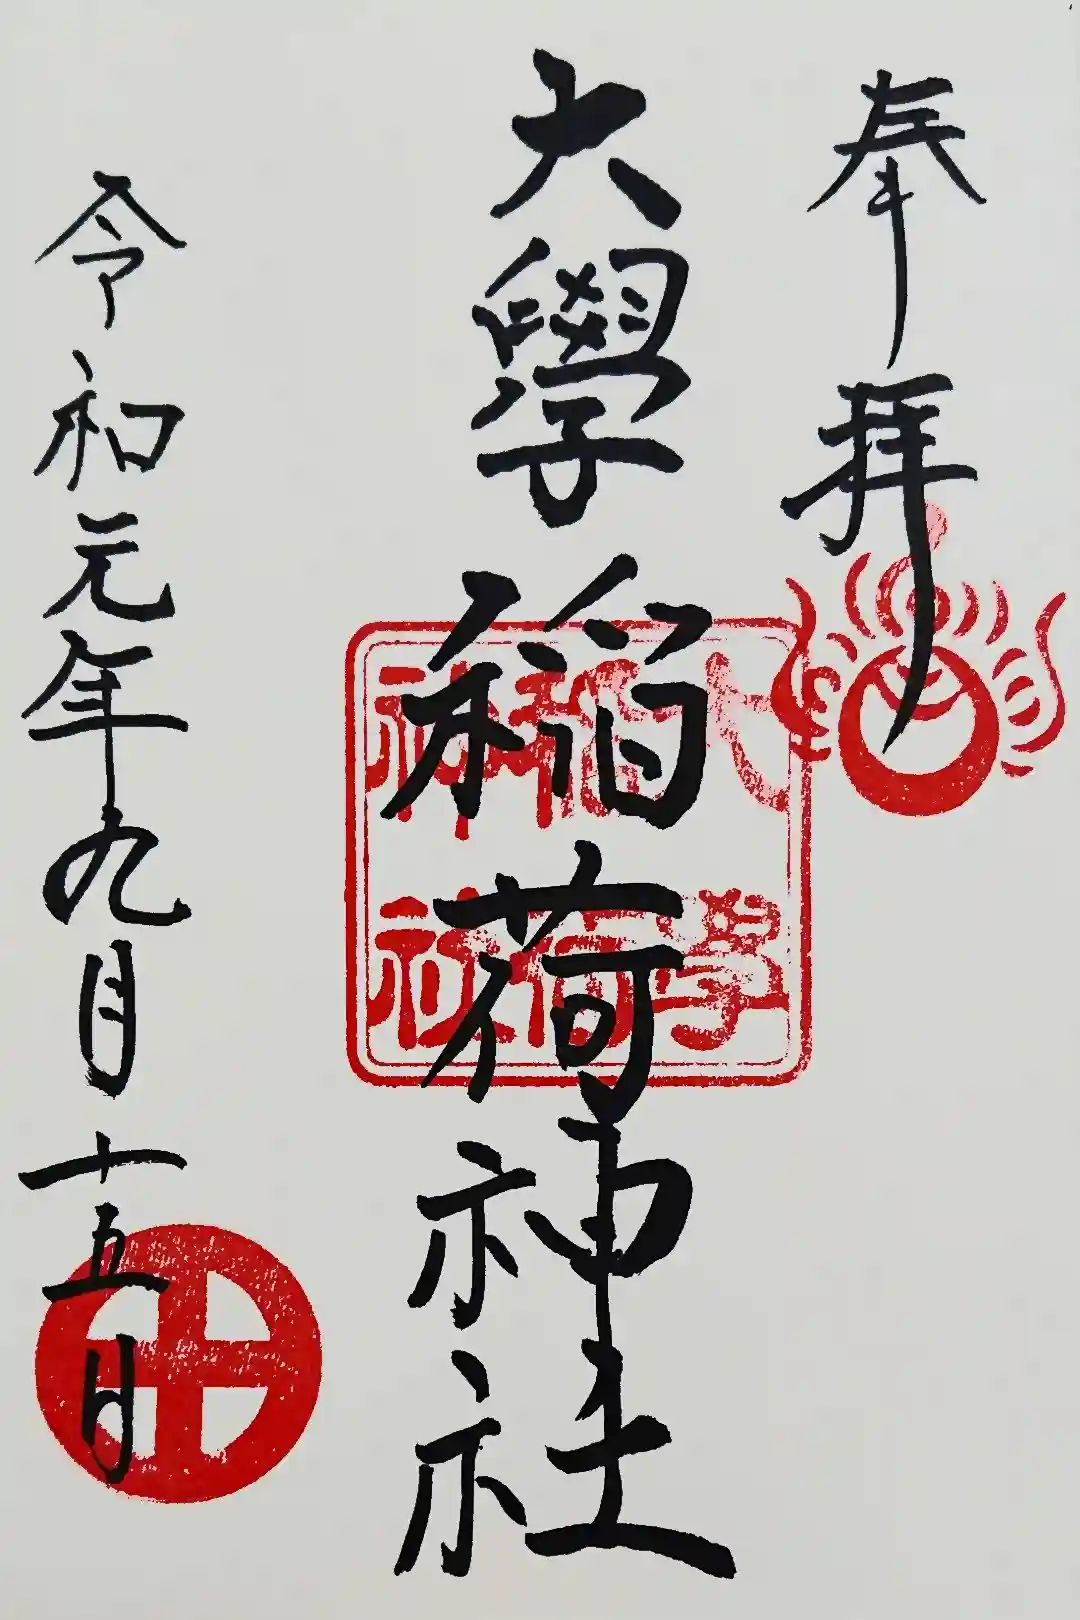 奉拝
大學稲荷神社
大學
稲荷
神社
令和元年九月十五日